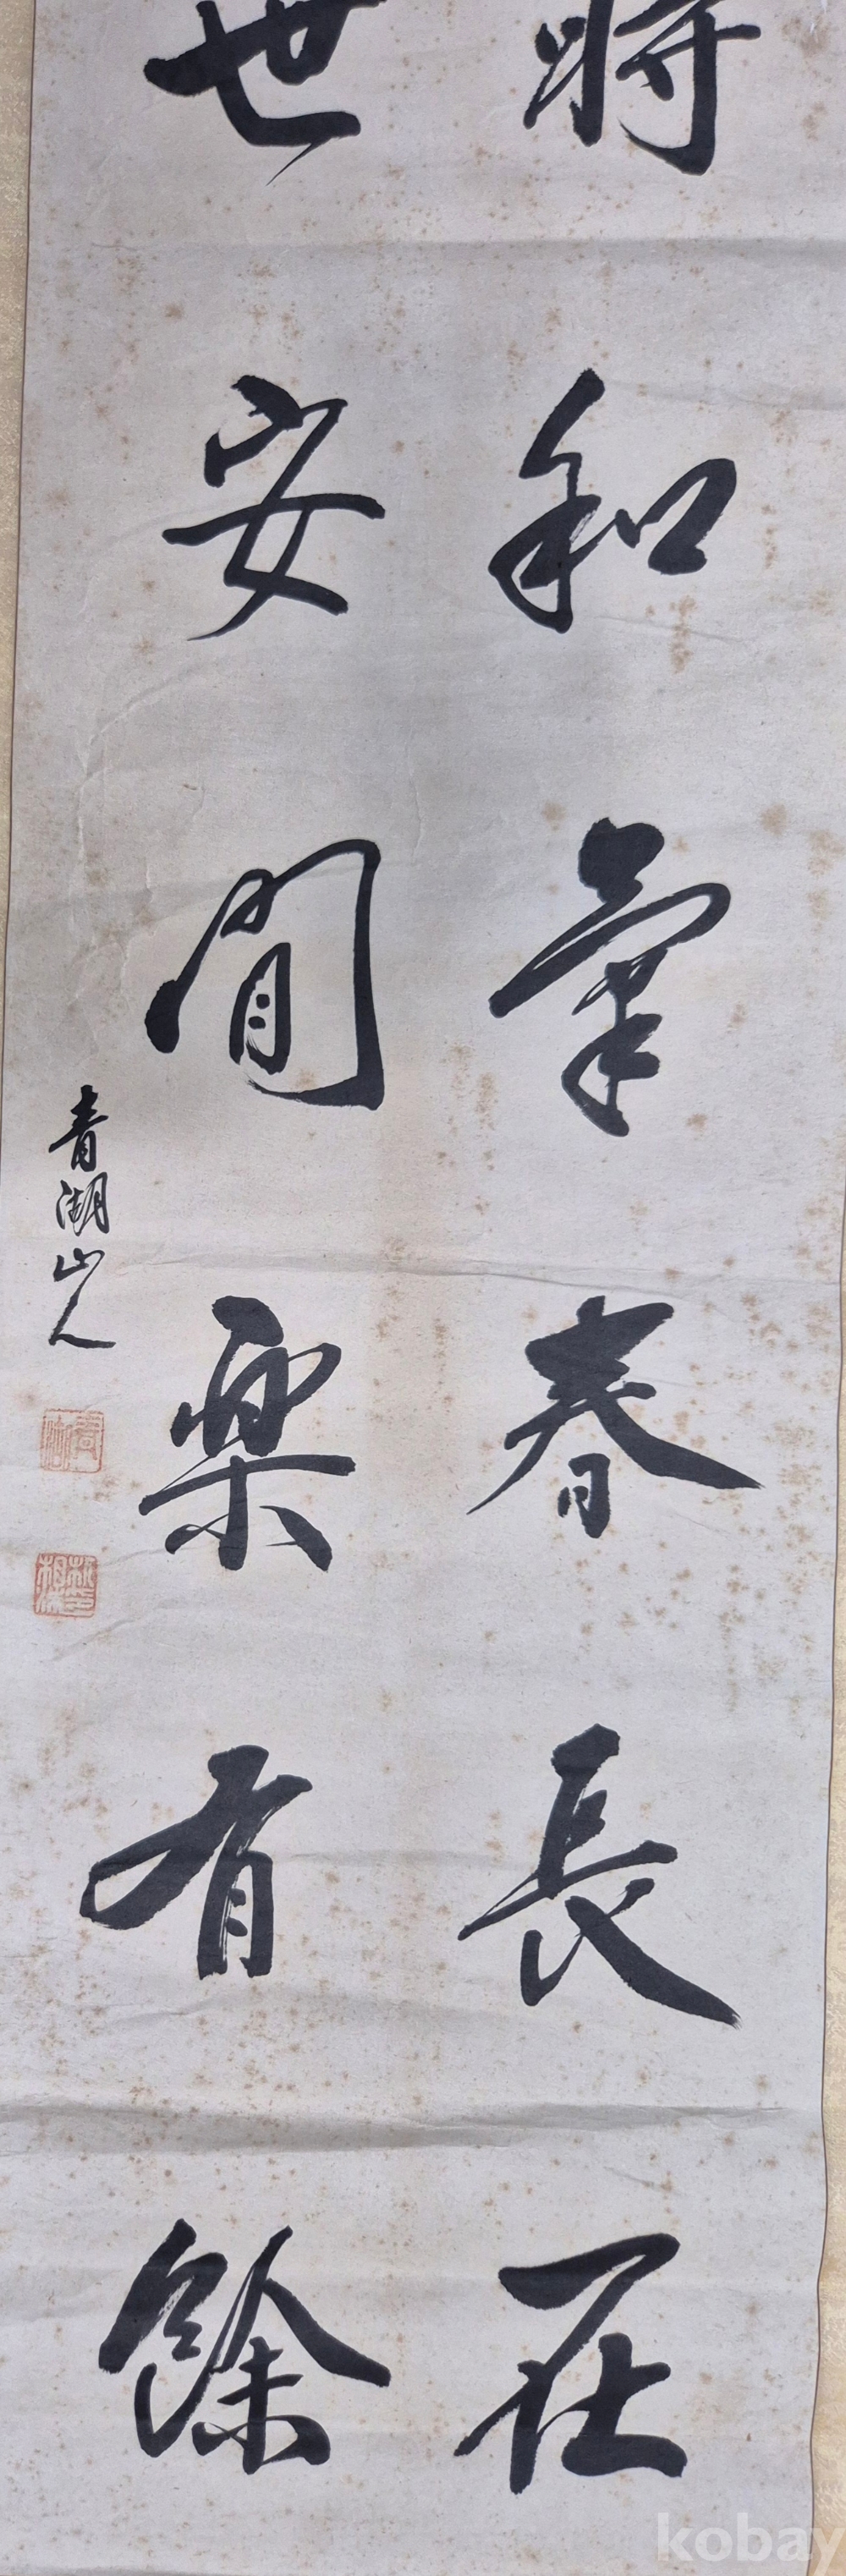 將和氣春長在
世安閒樂有餘
青湖山人
kobay